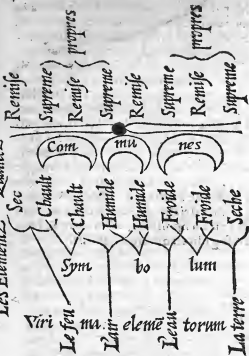 Les Elements
propres
propres
Remise
Supreme
Remise
Supreme
Remise
Supreme
Remise
Supreme
Com mu nes
Sec
Chault
Chault
Humide
Humide
Froide
Froide
Seche
Sym bo lum
Viri ma elemē torum
Le feu
L'air
L'eau
La terre